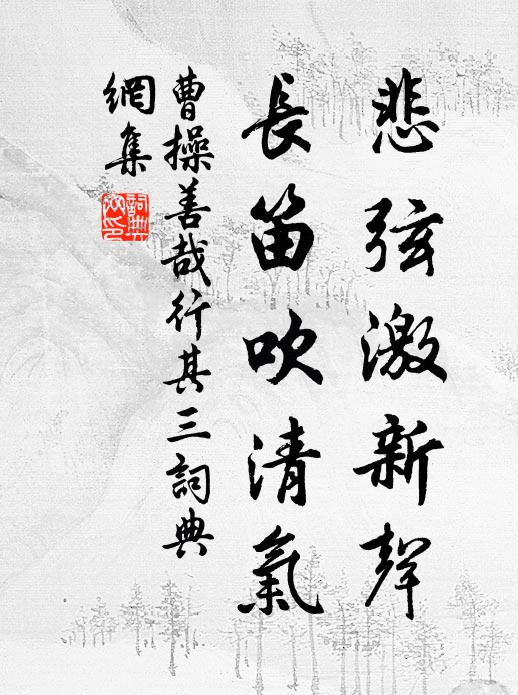 悲弦激新聲
長笛吹清氣
曹操善哉行其三詞典
網集
詞典
網印